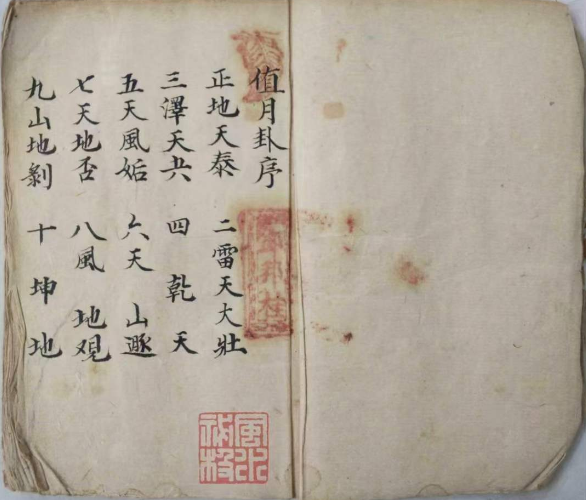 值月卦序
正地天泰 二雷天大壯
三澤天夬 四乾天
五天風姤 六天山遯
七天地否 八風地覌
九山地剝 十坤地
風水